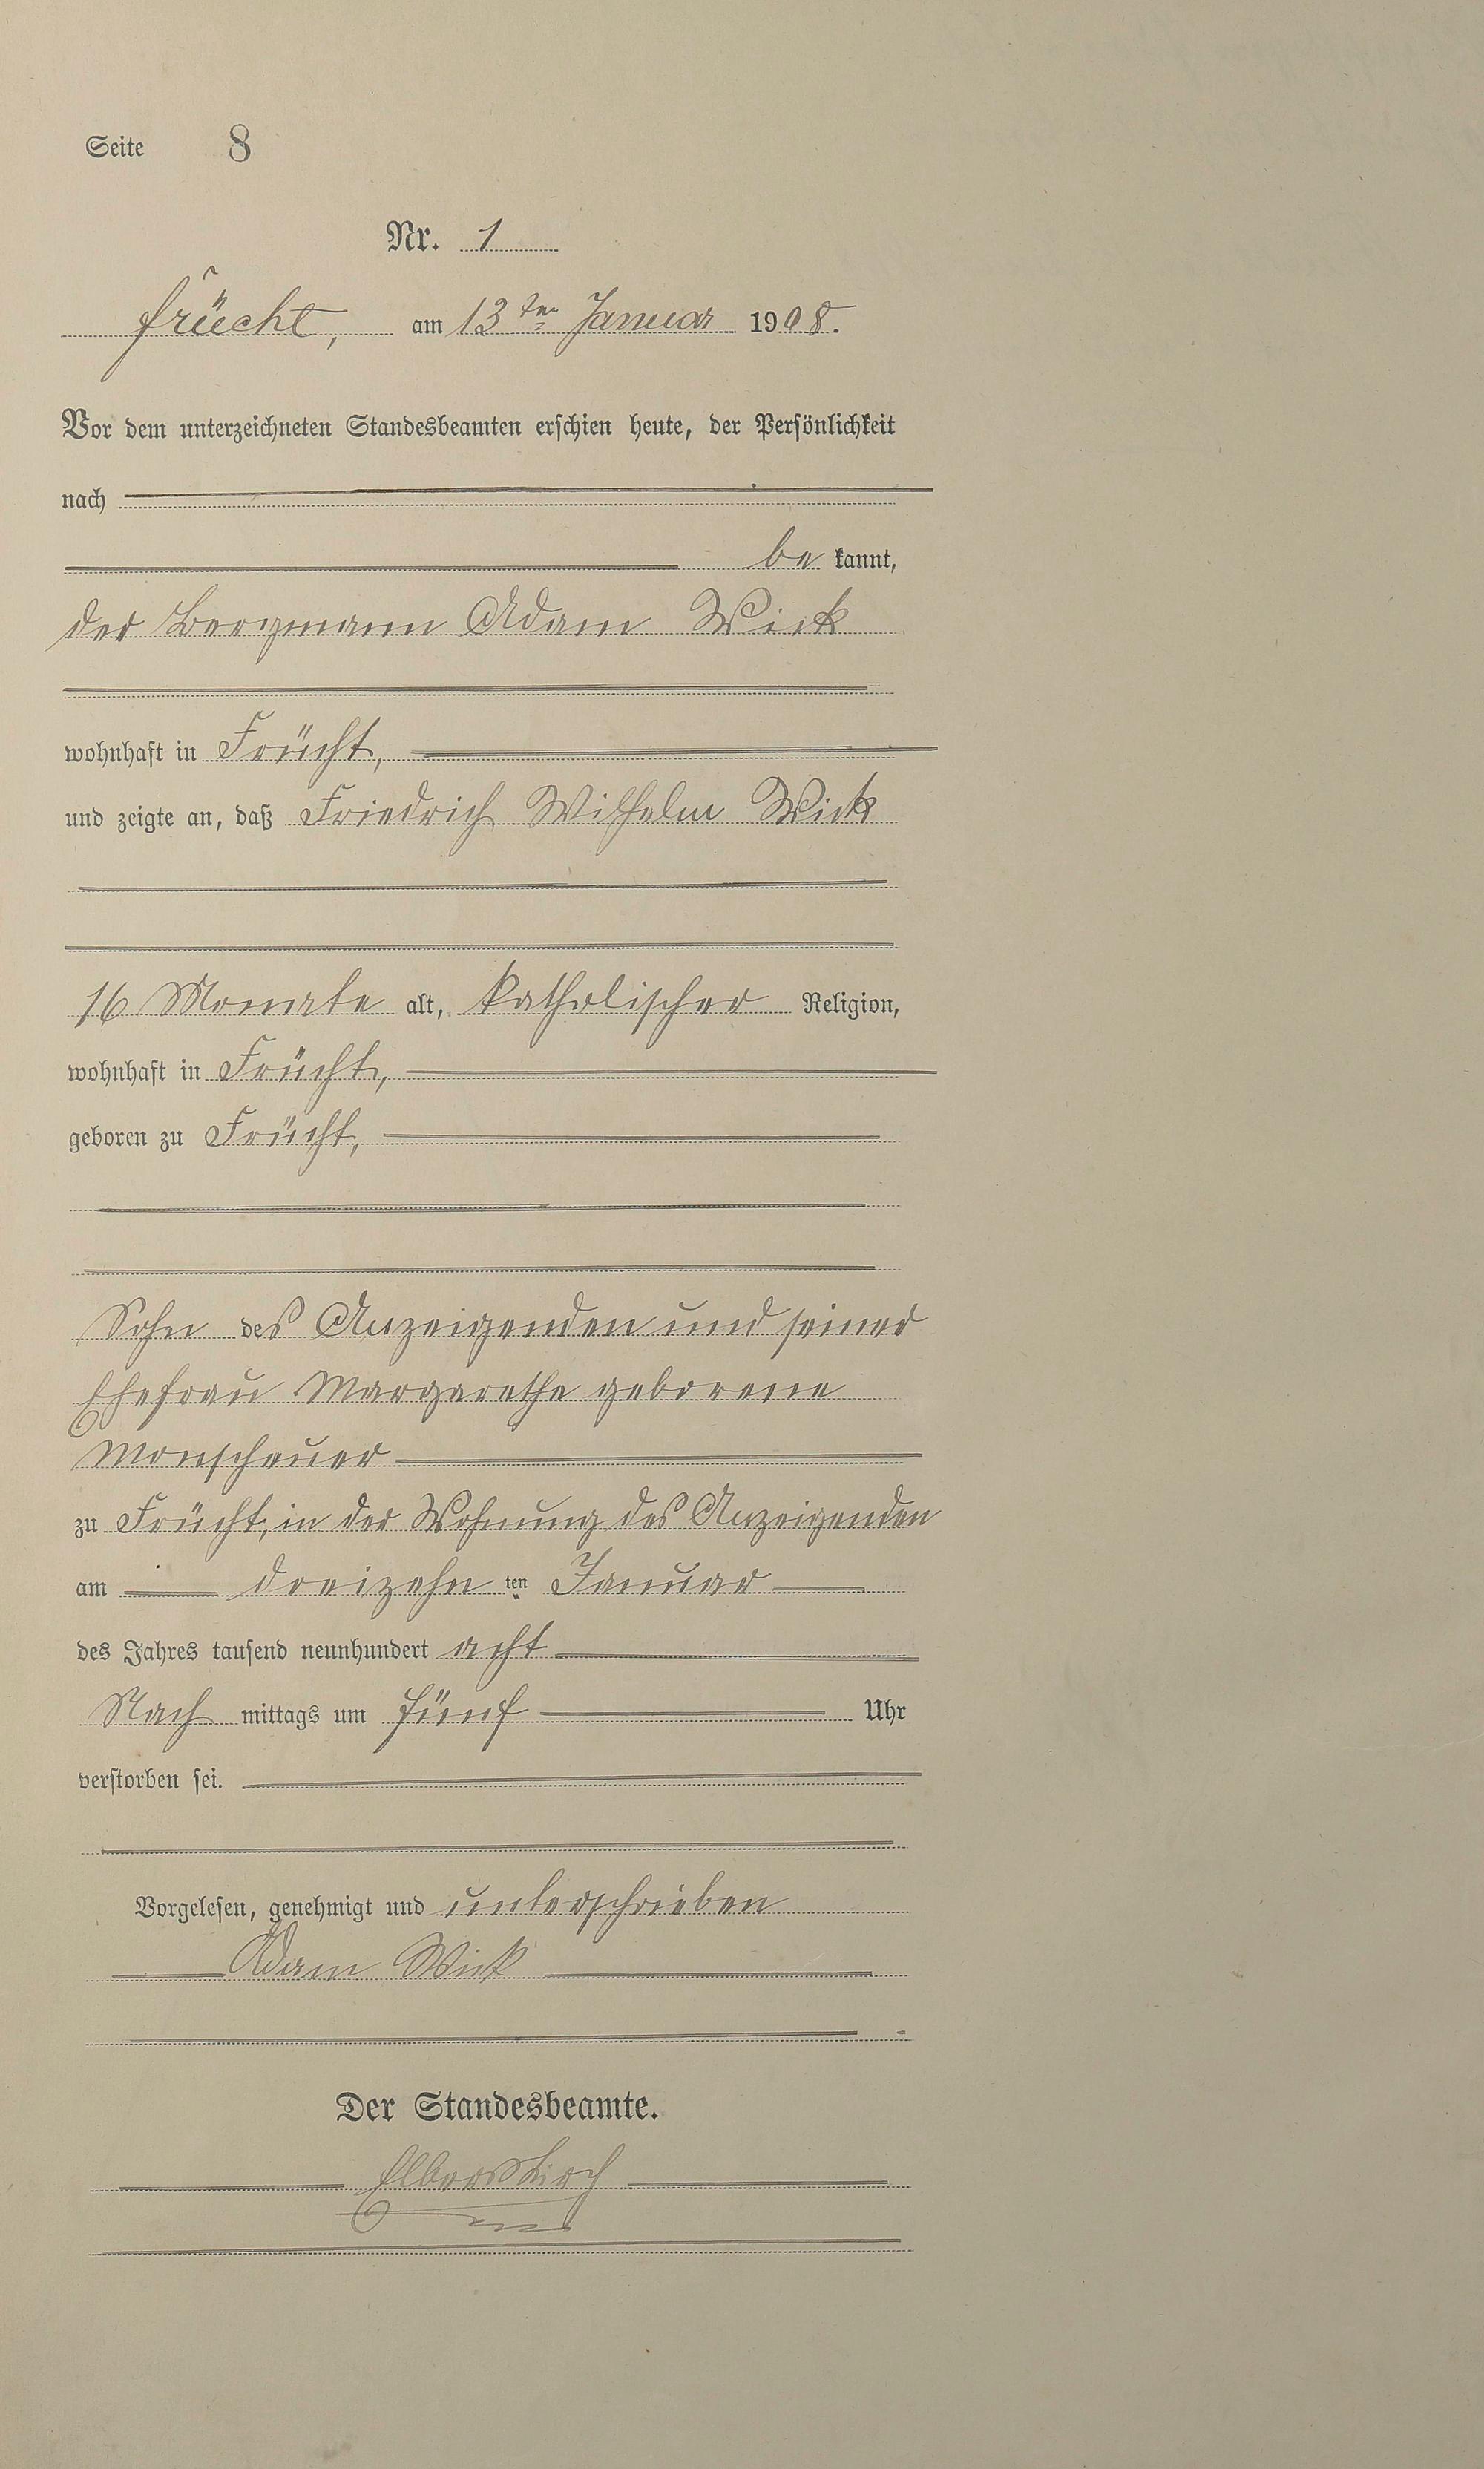 Seite 8
Nr. 1
Frücht, am 13ten Januar 1908.
Vor dem unterzeichneten Standesbeamten erschien heute, der Persönlichkeit
nach
be kannt,
der Bergmann Adam Wick
wohnhaft in Frücht,
und zeigte an, daß Friedrich Wilhelm Wick
16 Monate alt, katholischer Religion,
wohnhaft in Frücht,
geboren zu Frücht,
Sohn des Anzeigenden und seiner
Ehefrau Margarethe geborene
Monschauer
zu Frücht, in der Wohnung des Anzeigenden
am dreizehn ten Januar
des Jahres tausend neunhundert acht
Nach mittags um fünf Uhr
verstorben sei.
Vorgelesen, genehmigt und unterschrieben
Adam Wick
Der Standesbeamte.
Elberskirch